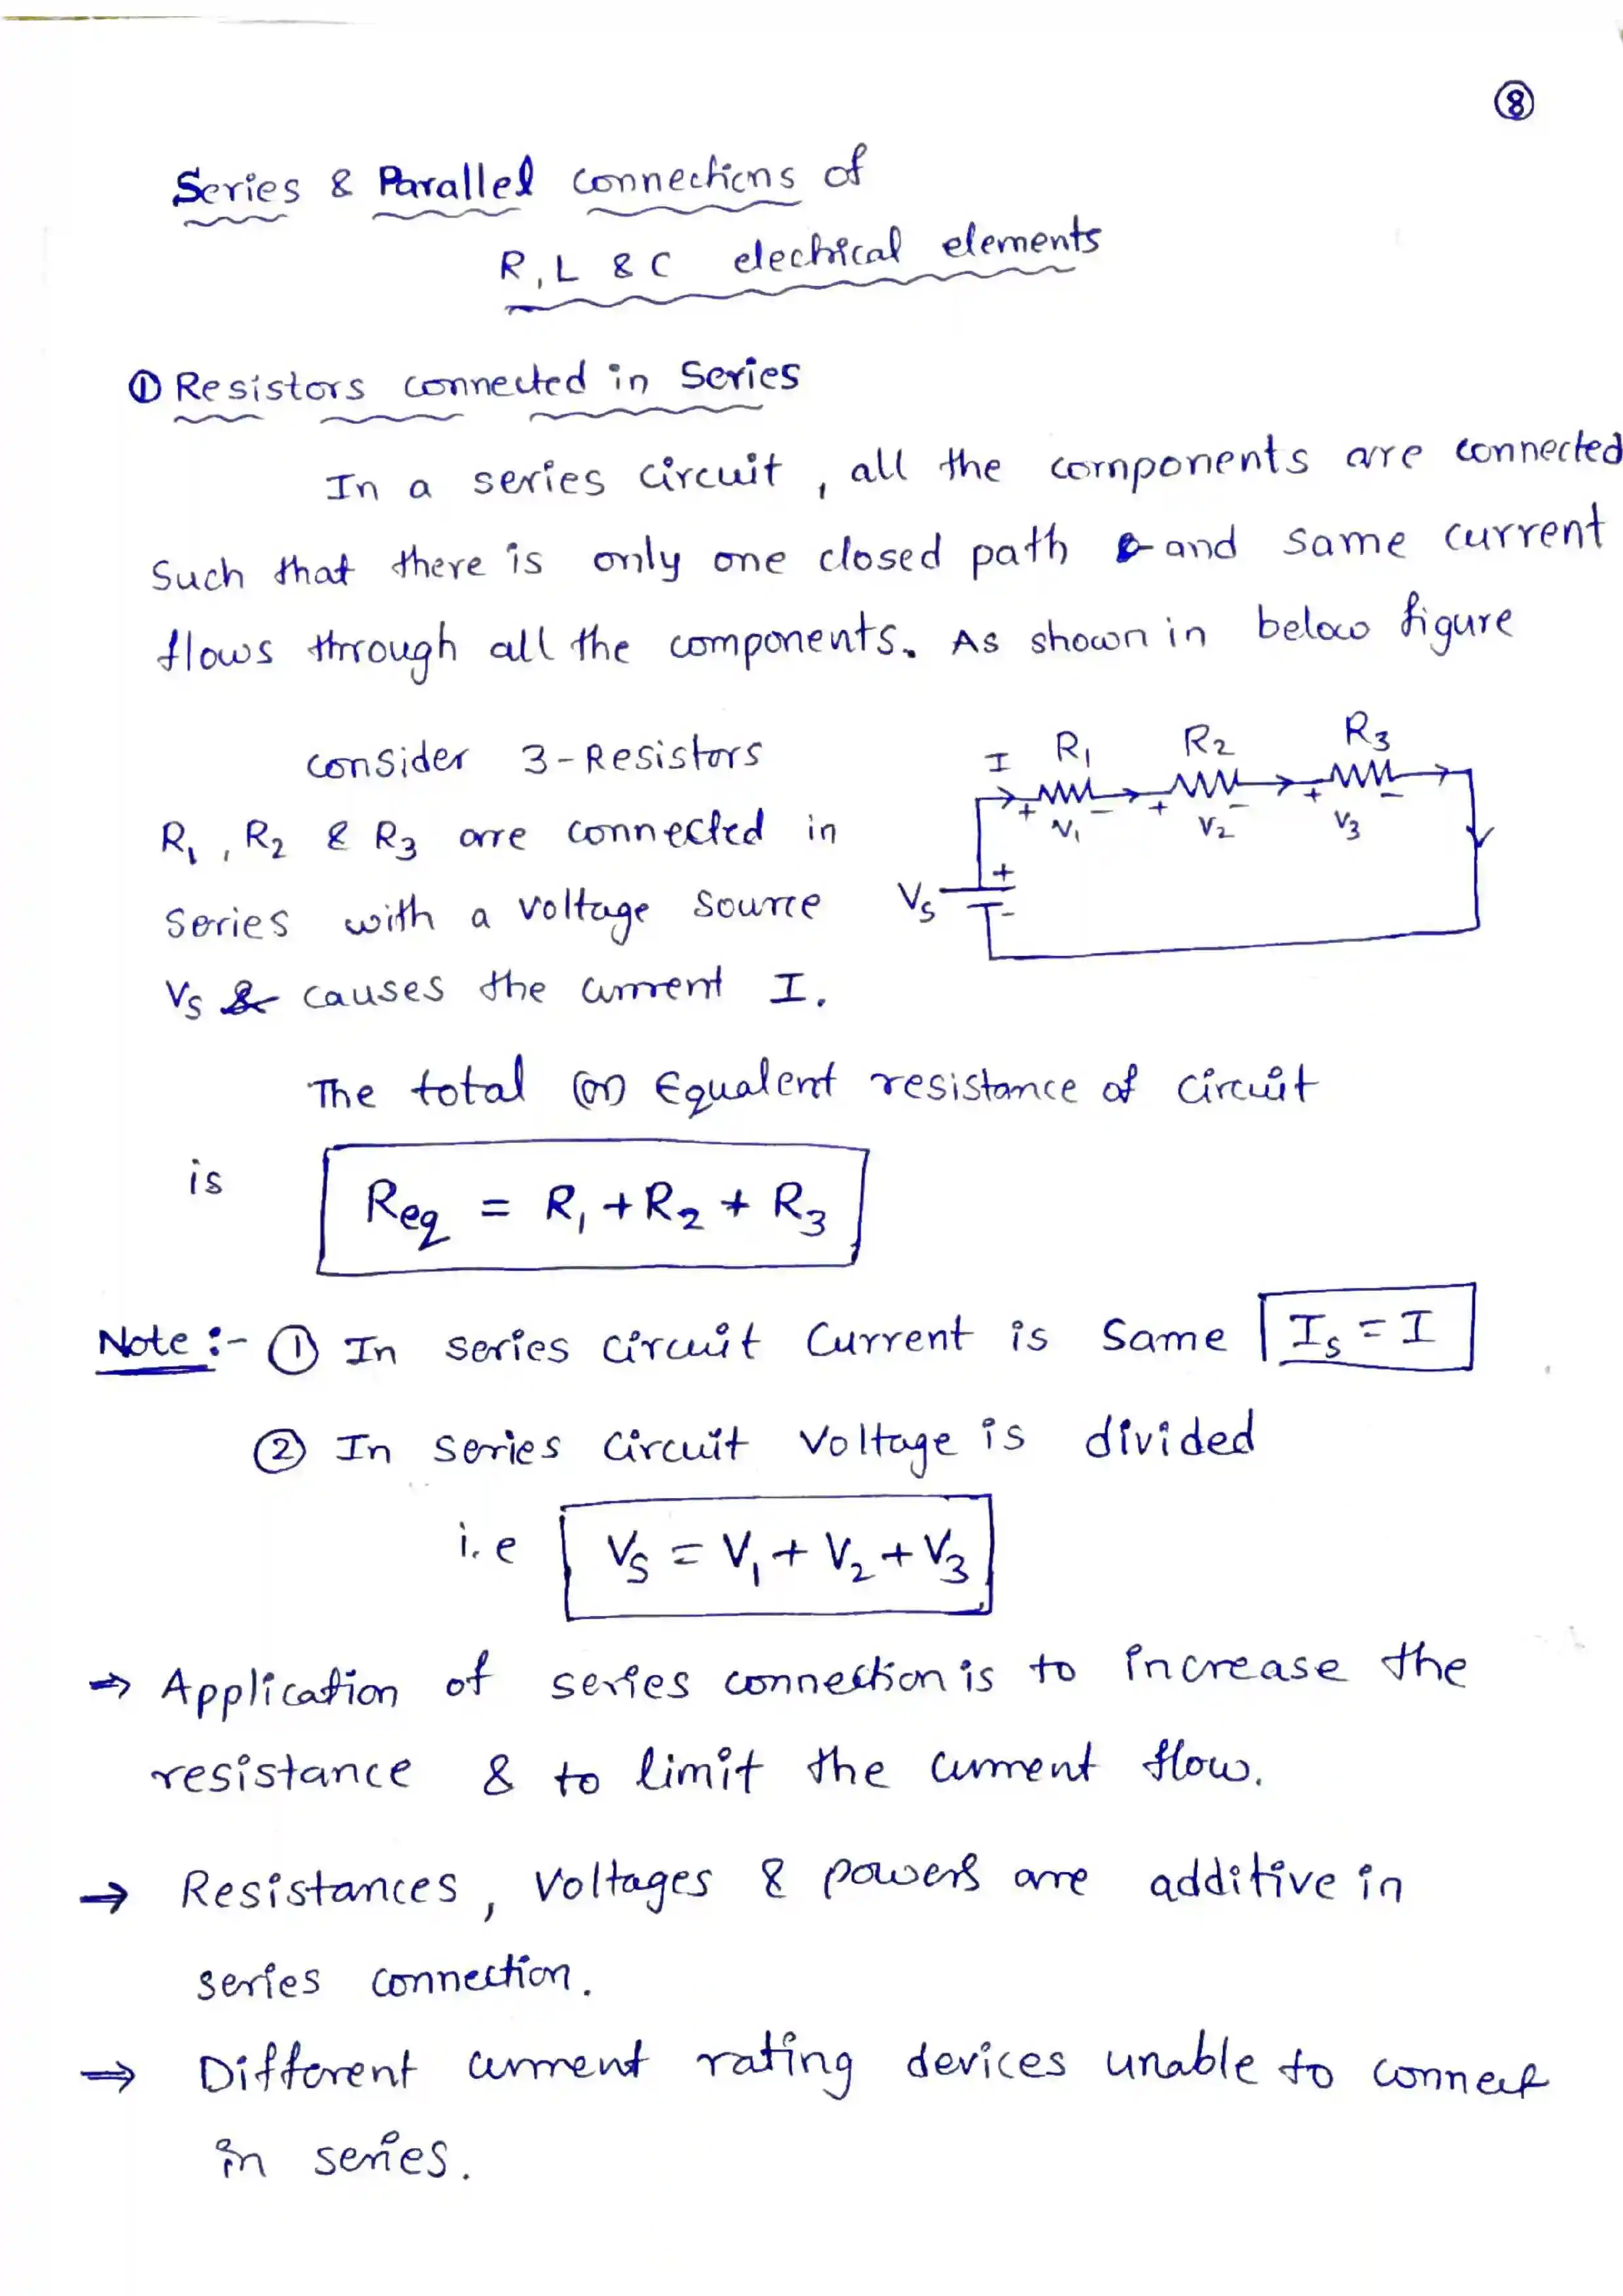 8
Series & Parallel connections of
R, L & C electrical elements
① Resistors connected in Series
In a series circuit, all the components are connected
Such that there is only one closed path and same current
flows through all the components. As shown in below figure
consider 3-Resistors
R1, R2 & R3 are connected in
Series with a voltage source
Vs & causes the current I.
I R1 R2 R3
+ - + - + -
V1 V2 V3
Vs + -
The total (or) Equalent resistance of circuit
is Req = R1 + R2 + R3
Note :- ① In series circuit Current is Same Is = I
② In series circuit Voltage is divided
i.e Vs = V1 + V2 + V3
⇒ Application of series connection is to increase the
resistance & to limit the current flow.
→ Resistances, Voltages & powers are additive in
series connection.
⇒ Different current rating devices unable to connect
in series.